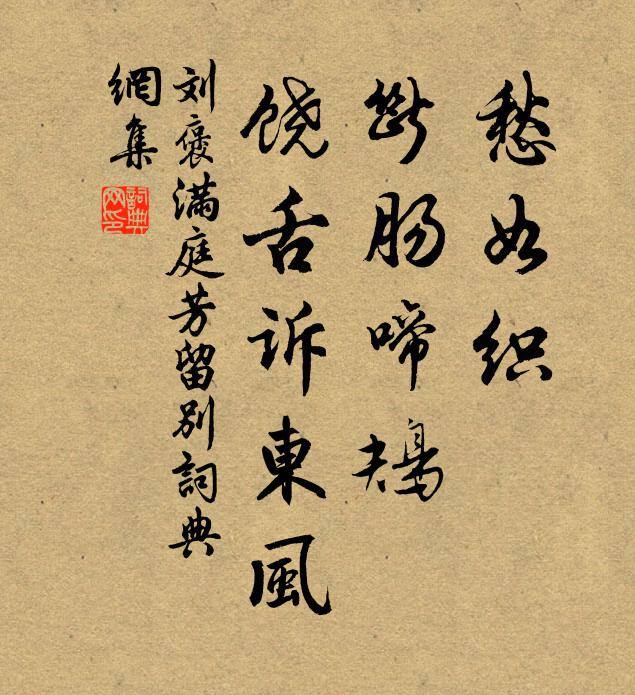 愁如织
断肠啼鴂
饶舌诉東風
刘褒满庭芳留别詞典
網集
詞典
网印